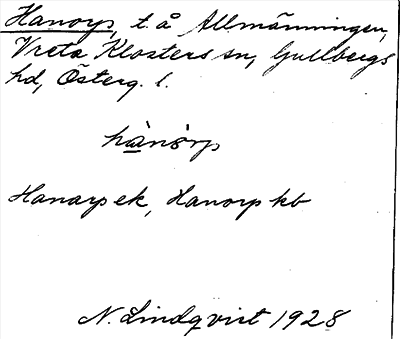 Hanorp, t. å Allmänningen,
Vreta Klosters sn, Gullbergs
hd, Österg. l.
hànòrp
Hanarp ek, Hanorp kb
N. Lindqvist 1928